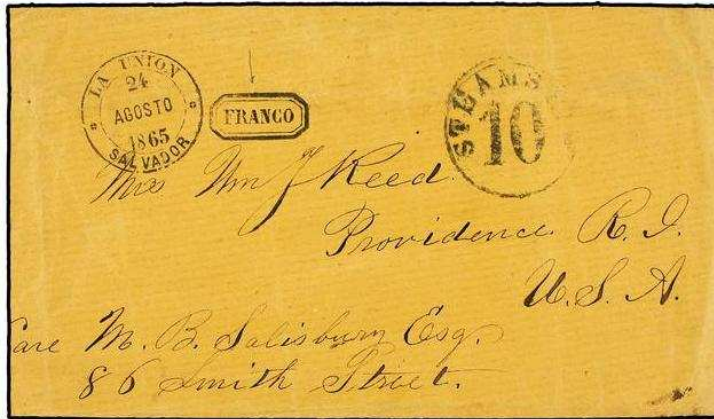 LA UNION
24
AGOSTO
1865
SALVADOR
FRANCO
STEAMS
10
Mrs Wm J Reed
Providence R. I.
U. S. A.
Care M. B. Salisbury Esq.
86 Smith Street.